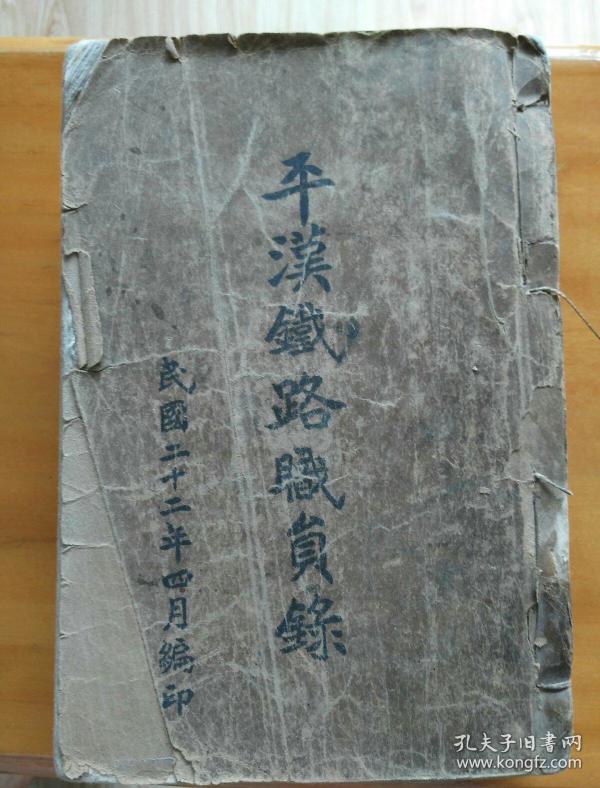 平漢鐵路職員錄
民國二十二年四月編印
孔夫子旧书网
www.kongfz.com